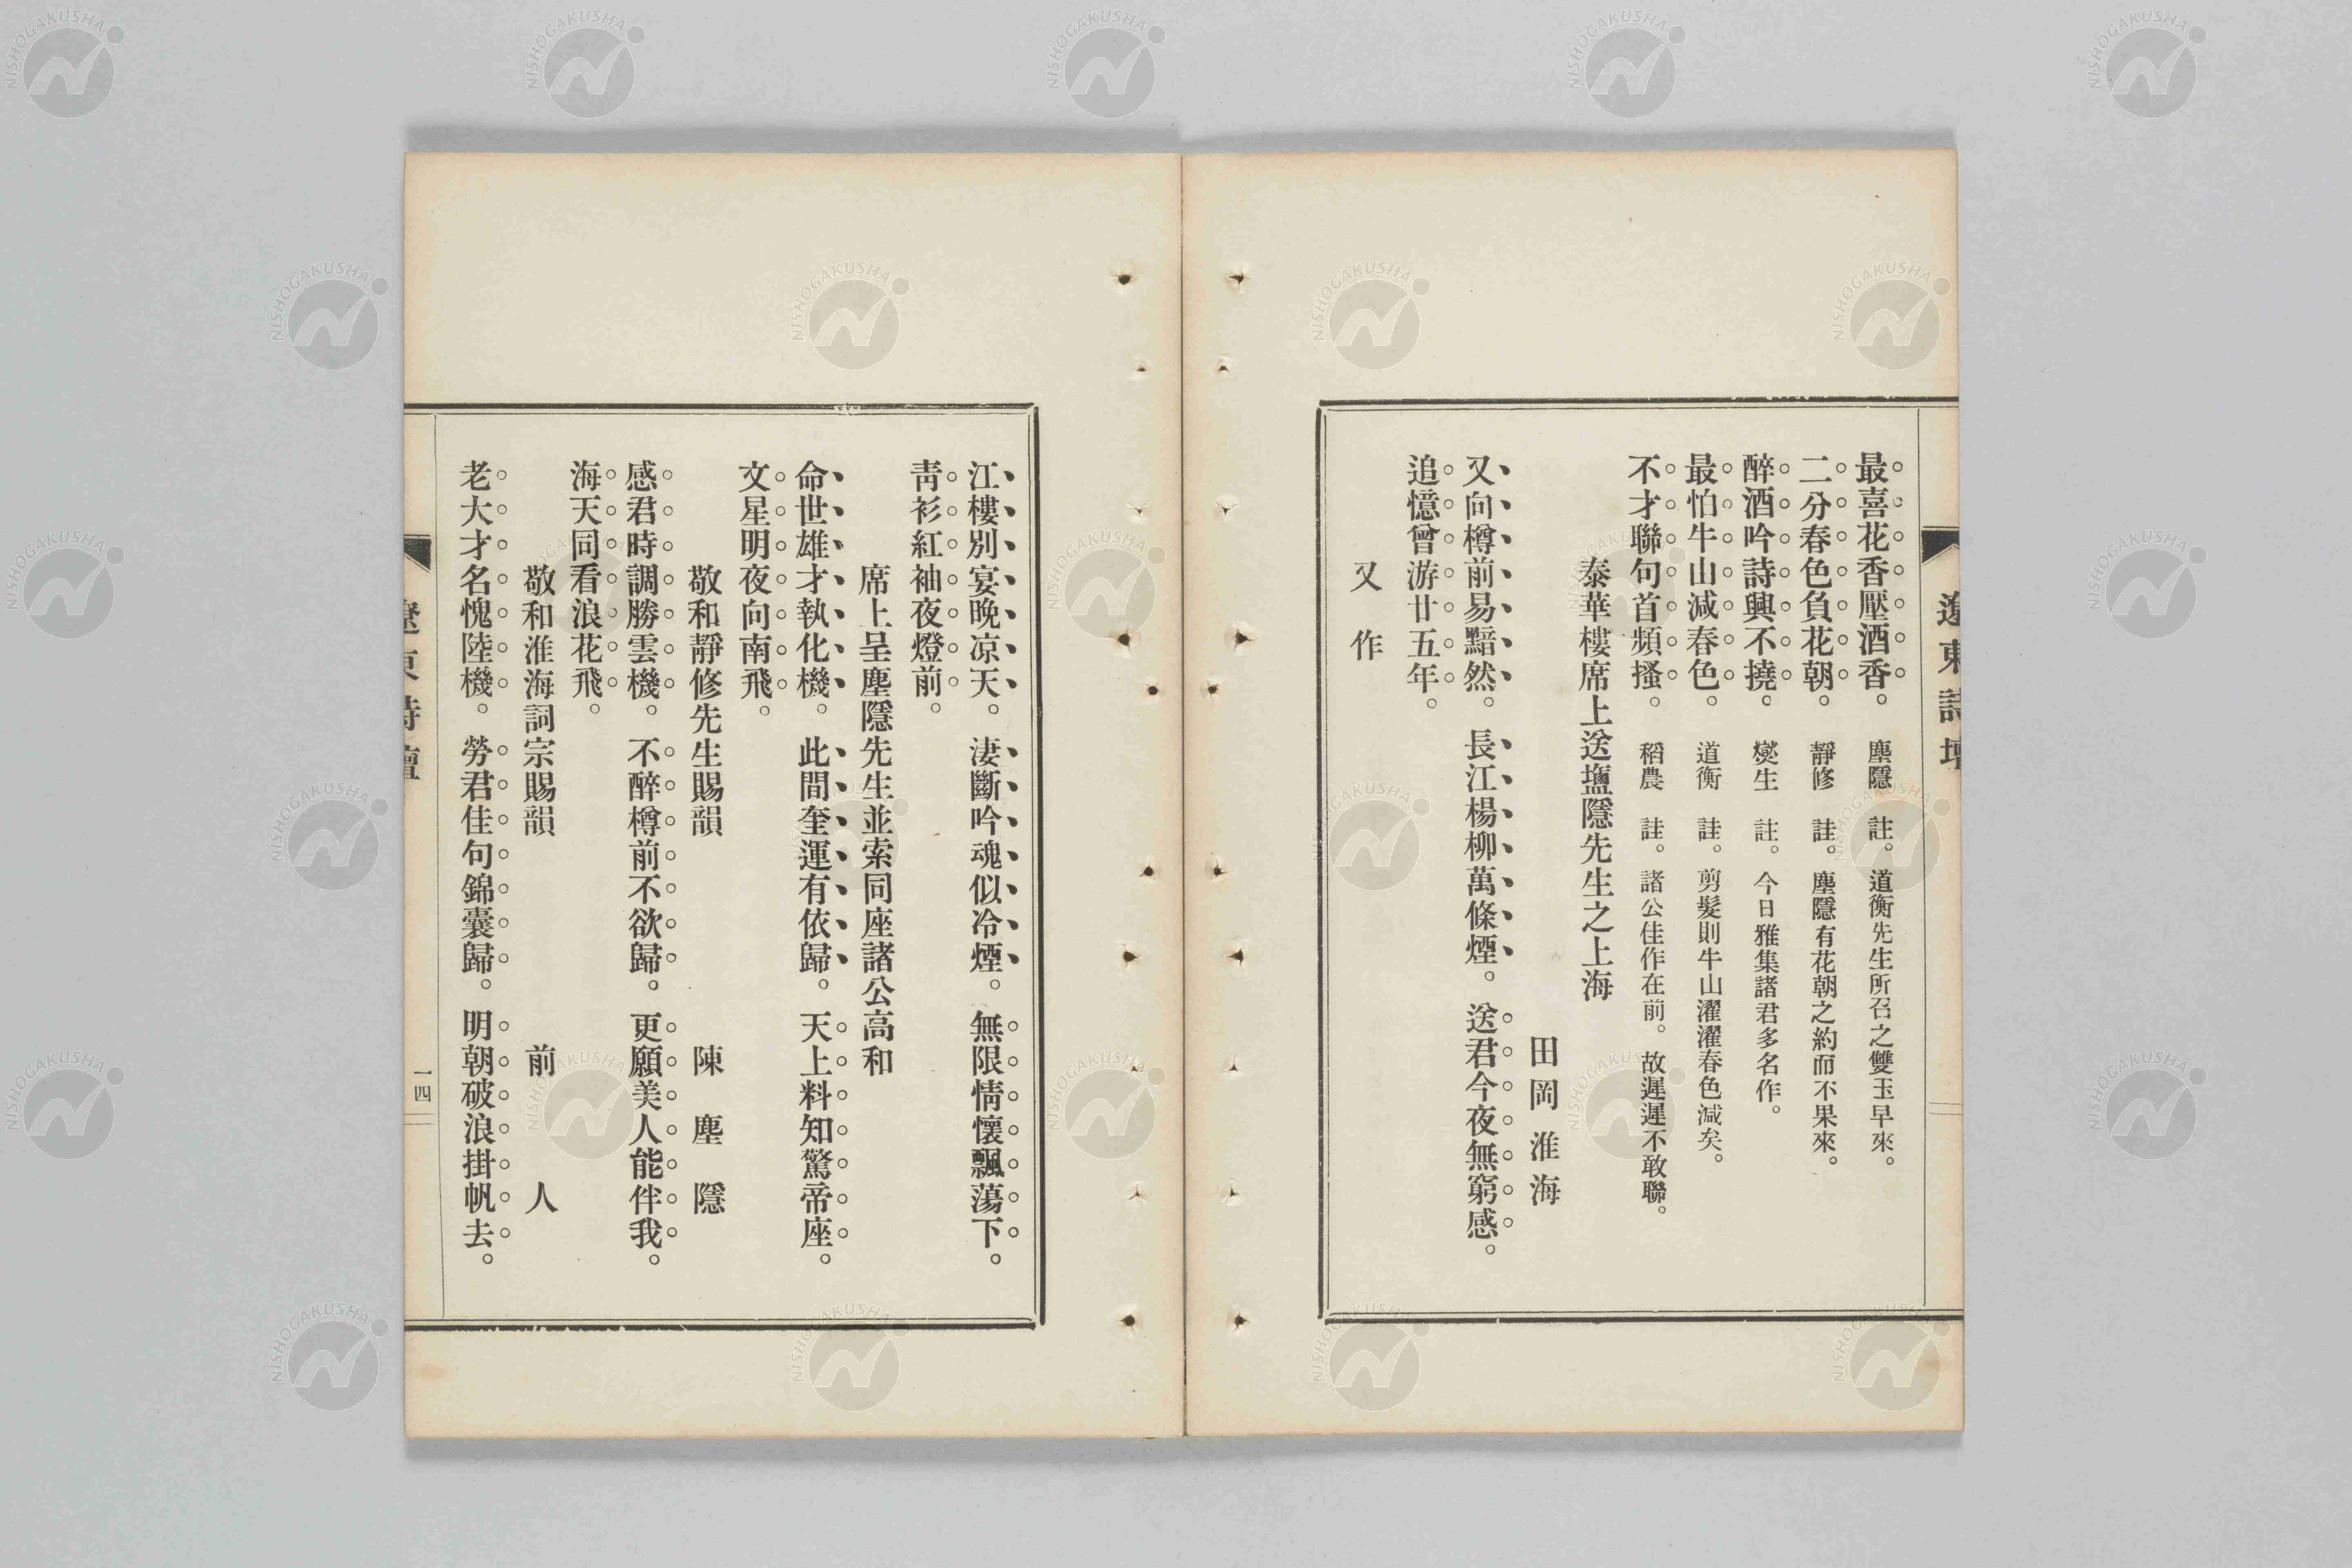 遼東詩壇
最喜花香壓酒香。 塵隱 註。道衡先生所召之雙玉早來。
二分春色負花朝。 靜修 註。塵隱有花朝之約而不果來。
醉酒吟詩興不撓。 燮生 註。今日雅集諸君多名作。
最怕牛山減春色。 道衡 註。剪髮則牛山濯濯春色減矣。
不才聯句首頻搔。 稻農 註。諸公佳作在前。故遲遲不敢聯。
泰華樓席上送鹽隱先生之上海
田岡淮海
又向樽前易黯然。長江楊柳萬條煙。送君今夜無窮感。
追憶曾游廿五年。
又作
江樓別宴晚凉天。淒斷吟魂似冷煙。無限情懷飄蕩下。
靑衫紅袖夜燈前。
席上呈塵隱先生並索同座諸公高和
命世雄才執化機。此間奎運有依歸。天上料知驚帝座。
文星明夜向南飛。
敬和靜修先生賜韻 陳塵隱
感君時調勝雲機。不醉樽前不欲歸。更願美人能伴我。
海天同看浪花飛。
敬和淮海詞宗賜韻 前人
老大才名愧陸機。勞君佳句錦囊歸。明朝破浪掛帆去。
遼東詩壇
一四
NISHOGAKUSHA